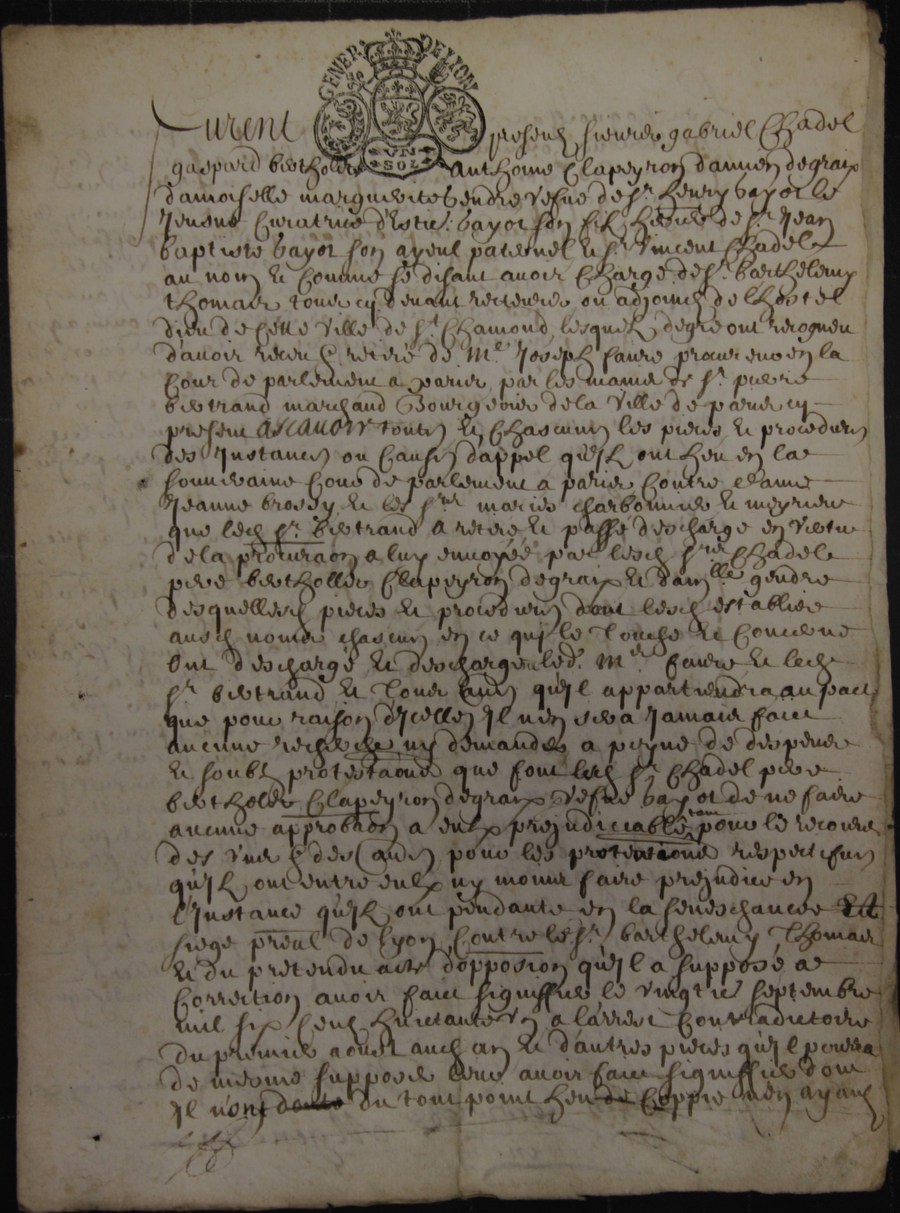 GENER DE LYON
VN SOL
Furent presens sieurs gabriel Chadel
gaspard bertholet Anthoine Clapeyron damien degraix
damoiselle marguerite gendre vefve de sr henry bayot le
Jeusne Curatrice d'Estie: bayot son fils heritier de sr Jean
baptiste bayot son ayeul paternel & sr Vincent Chadel
au nom & Comme se disant avoir Charge de sr barthelemy
thomas tous cy devant recteurs ou adjoincts de lhostel
dieu de cette ville de st Chamond, lesquels de gré ont recogneu
d'avoir receu & retiré de Me Joseph faure procureur en la
Cour de parlement a paris, par les mains de sr pierre
bertrand marchand Bourgeois de la ville de paris cy
present ascavoir toutes & Chascunes les pieces & procedures
des Instances ou Causes dappel quils ont heu en la
souveraine Cour de parlement a paris Contre dame
Jeanne brossy & les srs maries charbonnier & meyniere
que led sr bertrand a retiré & passé descharge en vertu
de la procuraon a luy envoyée par lesd srs Chadel
pere bertholler Clapeyron degraix & damlle gendre
desquelles pieces & procedures dont lesd establis
ausd noms chascun en ce quil le Touche & Concerne
Ont deschargé & deschargent led. Me faure & led
sr bertrand & Tous autres quil appartiendra, au pact
que pour raison d'ycelles Il nen sera Jamais faict
aucune recherche ny demandes a peyne de despens
& soubs protestaons que font lesd sr Chadel pere
bertholet Clapeyron degraix vefve bayot de ne faire
aucune approbaon a eulx prejudiciable tant pour le recours
des uns & des autres pour les pretensions respectifves
quils ont entre eulx ny moins faire prejudice en
l'Instance quils ont pendante en la seneschaucée &
siege presal de lyon Contre le sr barthelemy Thomas
& du pretendu acte d'opposion quil a supposé de
Correction avoir faict signiffier le vingt septembre
mil six sents huictante un a l'arrest Contradictoire
du premier aoust aud an & dautres pieces quil pourra
de mesme supposer leur avoir faict signiffier dont
Il n'ont du tout point heu de Coppie nen ayant